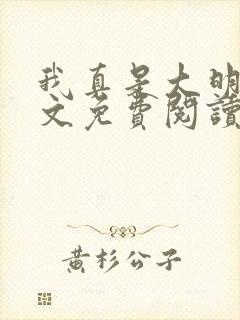 我真是大明
文免费閱讀
黄杉公子